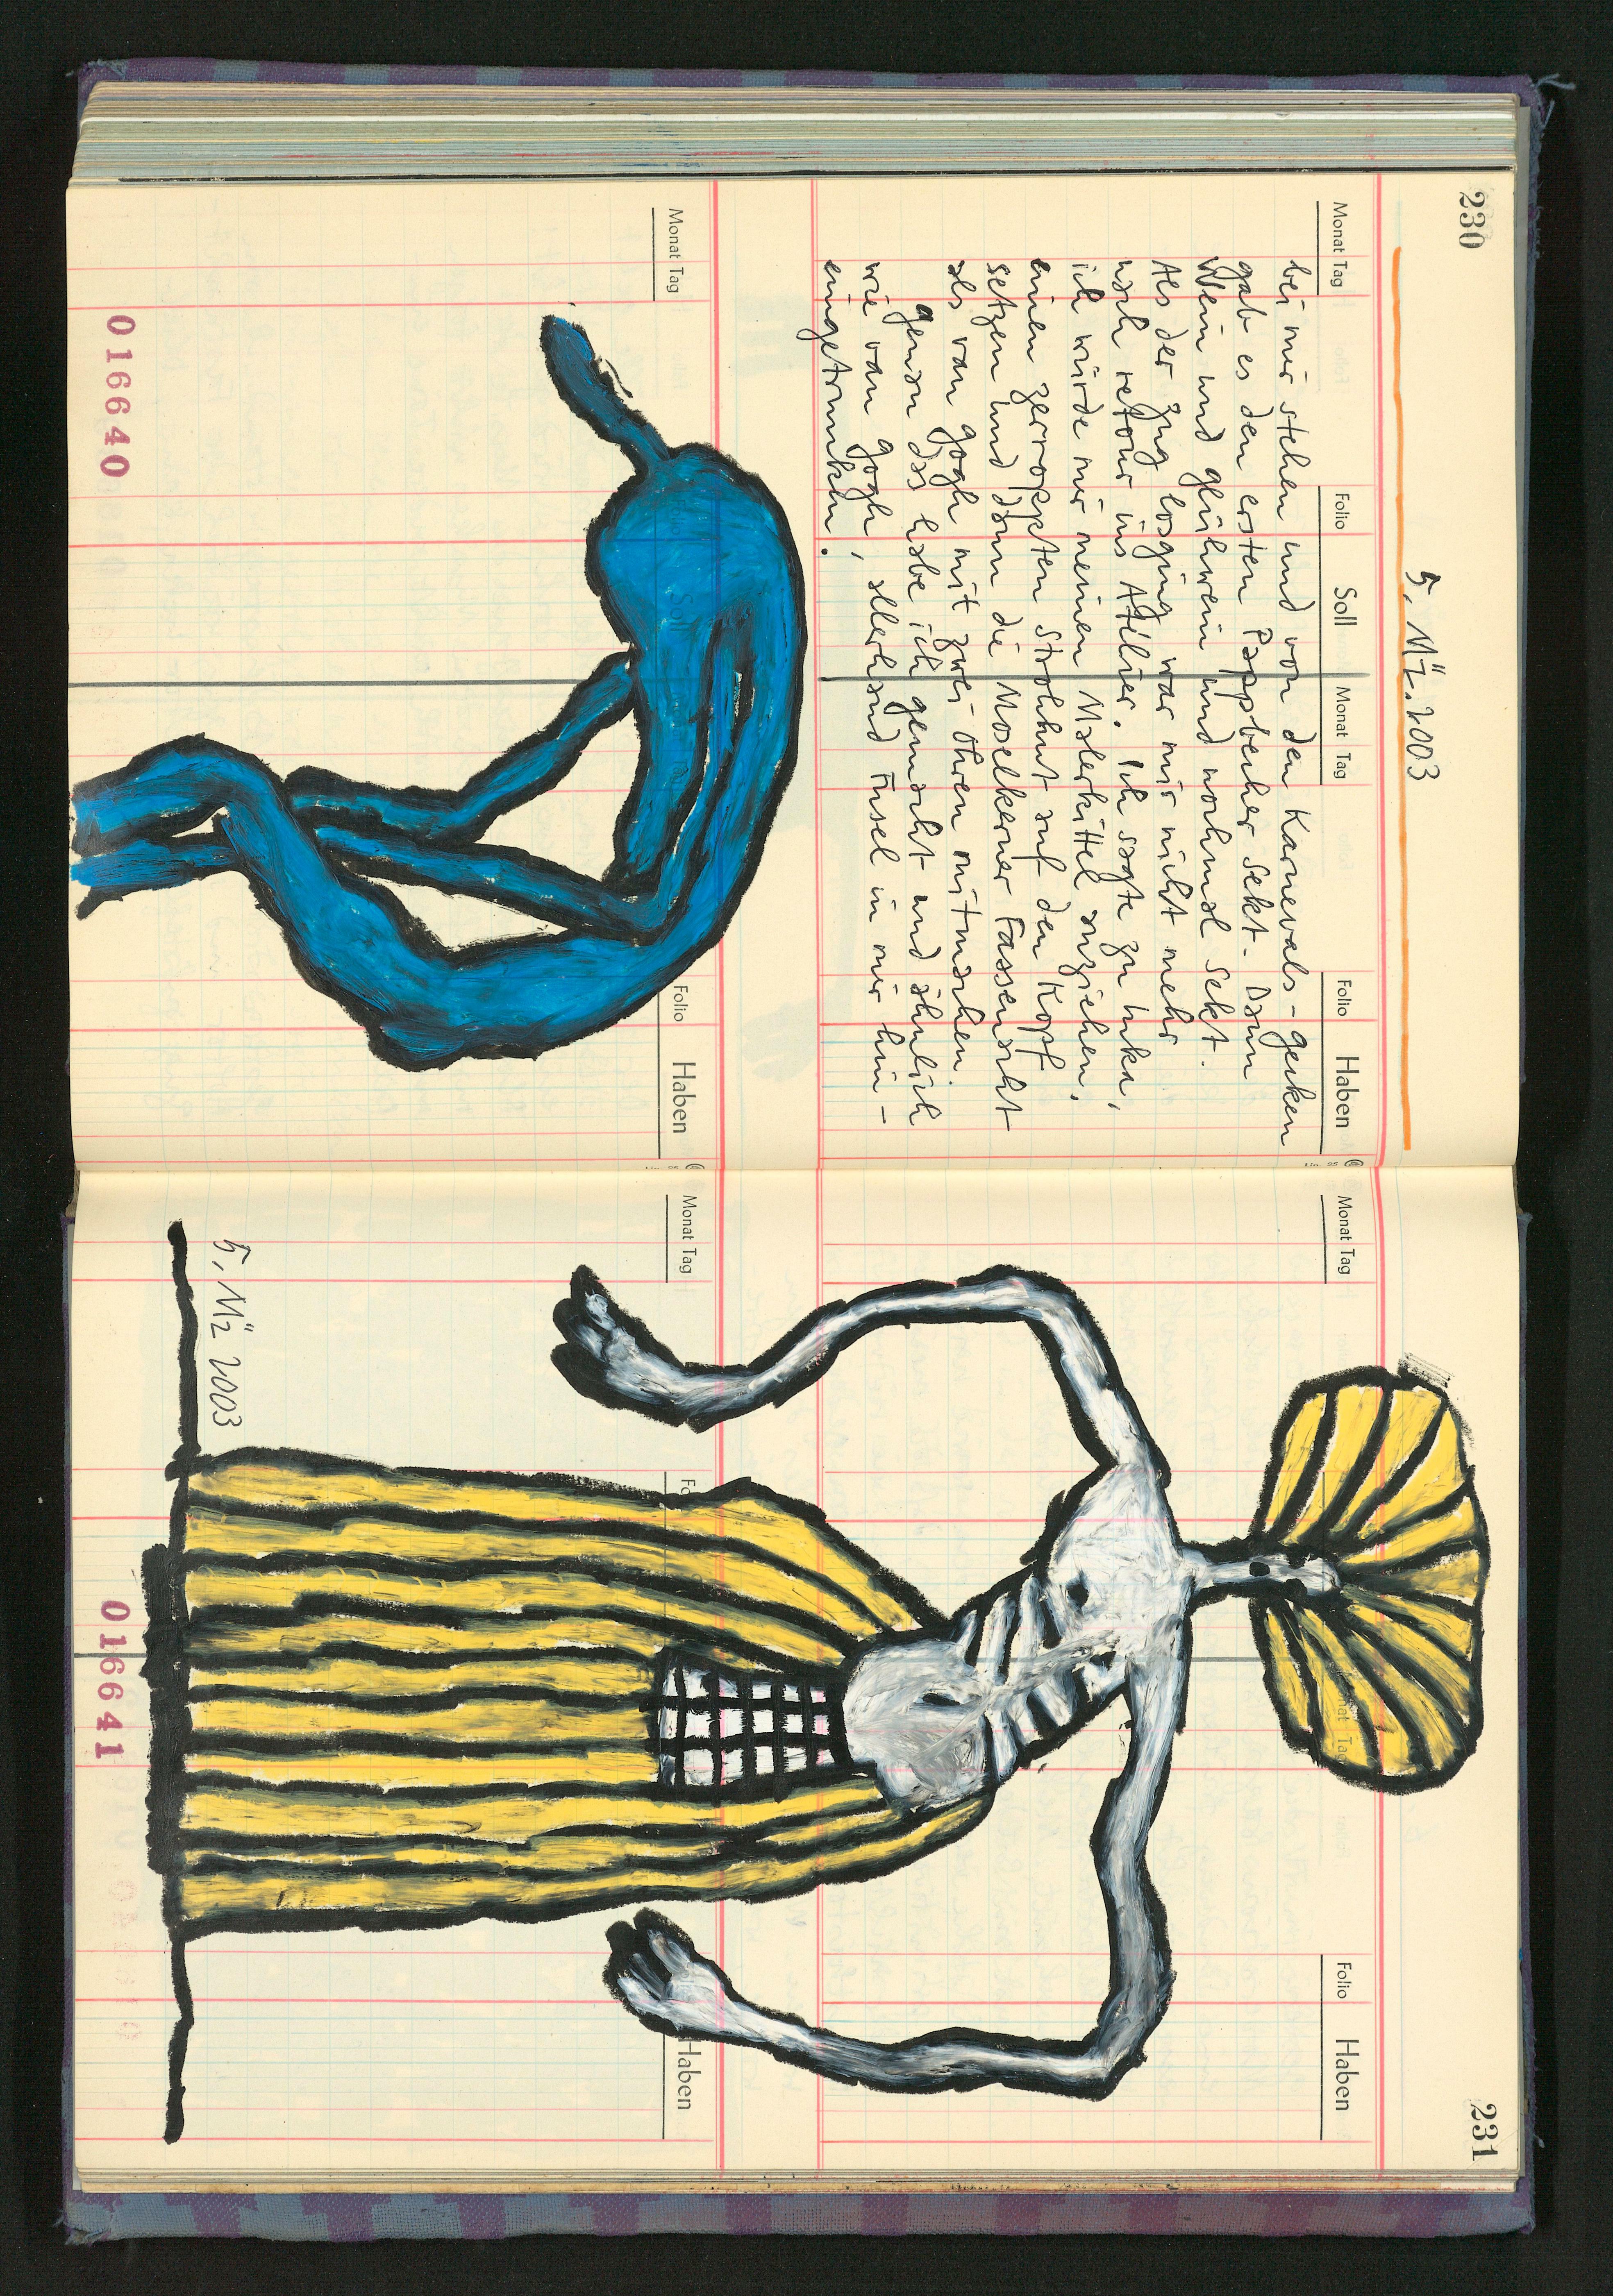 230
5. Mz. 2003
Monat Tag Folio Soll Monat Tag Folio Haben
bei mir stehen und von den Karnevals-gecken
gab es den ersten Pappbecher Sekt. Dann
Wein und glühwein und nochmal Sekt.
Als der zug losging war mir nicht mehr
nach retour ins Atélier. Ich sagte zu
ich würde mir meinen Malerkittel anziehen,
einen zerroppten Strohhut auf den Kopf
setzen und dann die Moselkerner Fassenacht
als van gogh mit zwei Ohren mitmachen.
genau das habe ich gemacht und ähnlich
wie van gogh, allerhand Fusel in mir hin-
eingetrunken.
Monat Tag Folio Haben
016640
231
Monat Tag Folio Haben
Monat Tag Fo Haben
5. Mz 2003
016641